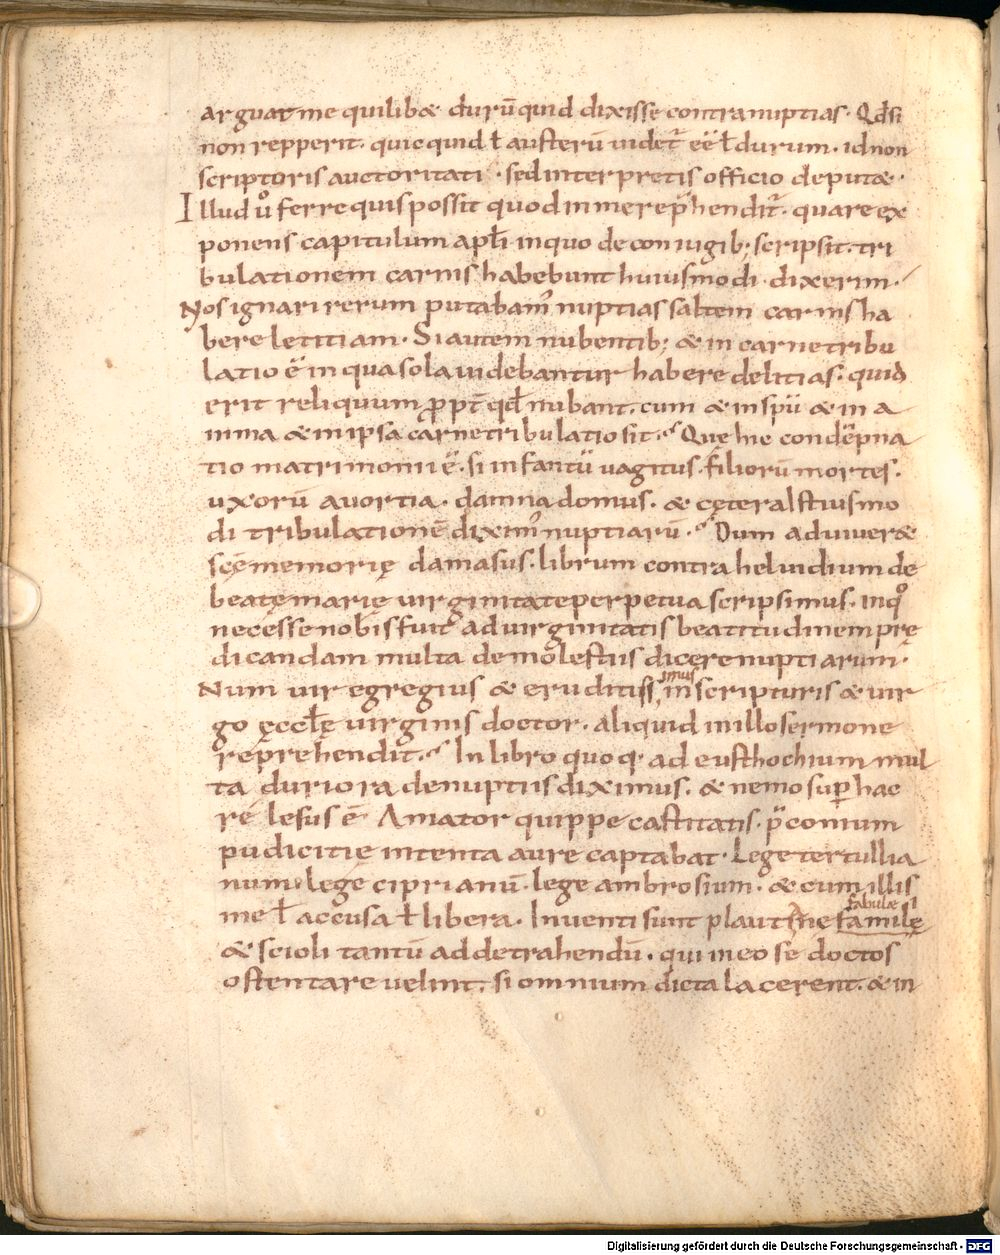 arguat me quilibæ durū quid dixisse contra nuptias · Qd̄ si
non repperit · quicquid ł austerū uidet̄ ēē ł durum · id non
scriptoris auctoritati · sed interpretis officio deputæ ·
Illud uͦ ferre quis possit quod in me rep̄hendit̄ · quare ex
ponens capitulum apłi in quo de coniugib; scripsit · tri
bulationem carnis habebunt huiusmodi · dixerim ·
Nos ignari rerum putabam᾽ nuptias saltem carnis ha
bere letitiam · Si autem nubentib; & in carne tribu
latio ē in qua sola uidebantur habere delitias · quid
erit reliquum ꝓpt̄ qd̄ nubant · cum & in spū & in a
nima & in ipsa carne tribulatio sit · Quę hic condēpna
tio matrimonii ē · si infantū uagitus · filiorū mortes ·
uxorū auortia · damna domus · & cętera istiusmo
di tribulationē dixim᾽ nuptiarū · Dum aduiueræ
scę̄ memorię damasus · librum contra heluidium de
beatę marię uirginitate perpetua scripsimus · in qͦ
necesse nobis fuit ad uirginitatis beatitudinem prę
dicandam multa de molestiis dicere nuptiarum ·
Num uir egregius & eruditiss, simus in scripturis & uir
go ęccłę uirginis doctor · aliquid in illo sermone
reprehendit · In libro quoq· ad eusthochium mul
ta duriora de nuptiis diximus · & nemo suꝑ hac
re lesus ē Amator quippe castitatis · p̄conium
pudicitie intenta aure captabat · Lege tertullia
num · lege ciprianū · lege ambrosium · & cum illis
me ł accusa ł libera · Inuenti sunt plautinę fabulæ familę
& scioli tantū ad detrahendū · qui in eo se doctos
ostentare uelint · si omnium dicta lacerent · & in
Digitalisierung gefördert durch die Deutsche Forschungsgemeinschaft - DFG